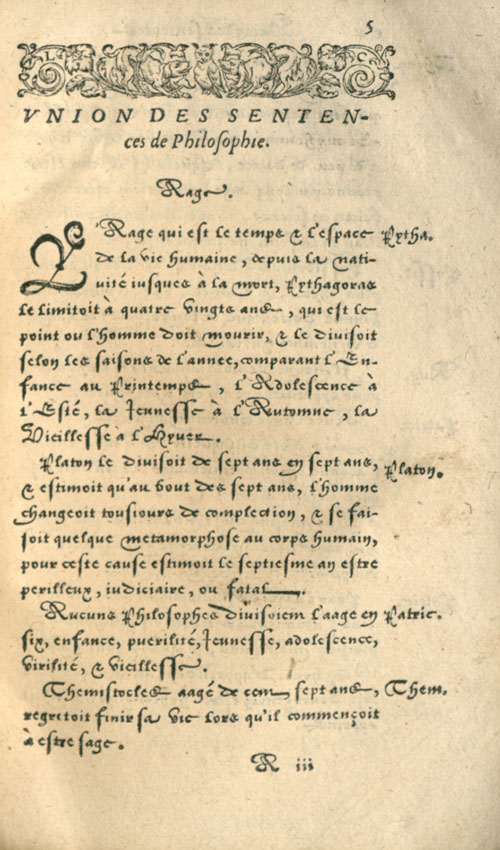 5
VNION DES SENTEN-
ces de Philosophie.
Aage.
L'Aage qui est le temps & l'espace Pytha.
de la vie humaine, depuis la nati-
uité iusques à la mort, Pythagoras
le limitoit à quatre vingts ans, qui est le
point ou l'homme doit mourir, & le diuisoit
selon les saisons de l'annee, comparant l'En-
fance au Printemps, l'Adolescence à
l'Esté, la Jeunesse à l'Automne, la
Vieillesse à l'Hyuer.
Platon le diuisoit de sept ans en sept ans, Platon.
& estimoit qu'au bout des sept ans, l'homme
changeoit tousiours de complection, & se fai-
soit quelque metamorphose au corps humain,
pour ceste cause estimoit le septiesme an estre
perilleux, iudiciaire, ou fatal.
Aucuns Philosophes diuisoient l'aage en Patric.
six, enfance, puerilité, Jeunesse, adolescence,
virilité, & vieillesse.
Themistocles aagé de cent sept ans, Them.
regretoit finir sa vie lors qu'il commençoit
à estre sage.
A iii